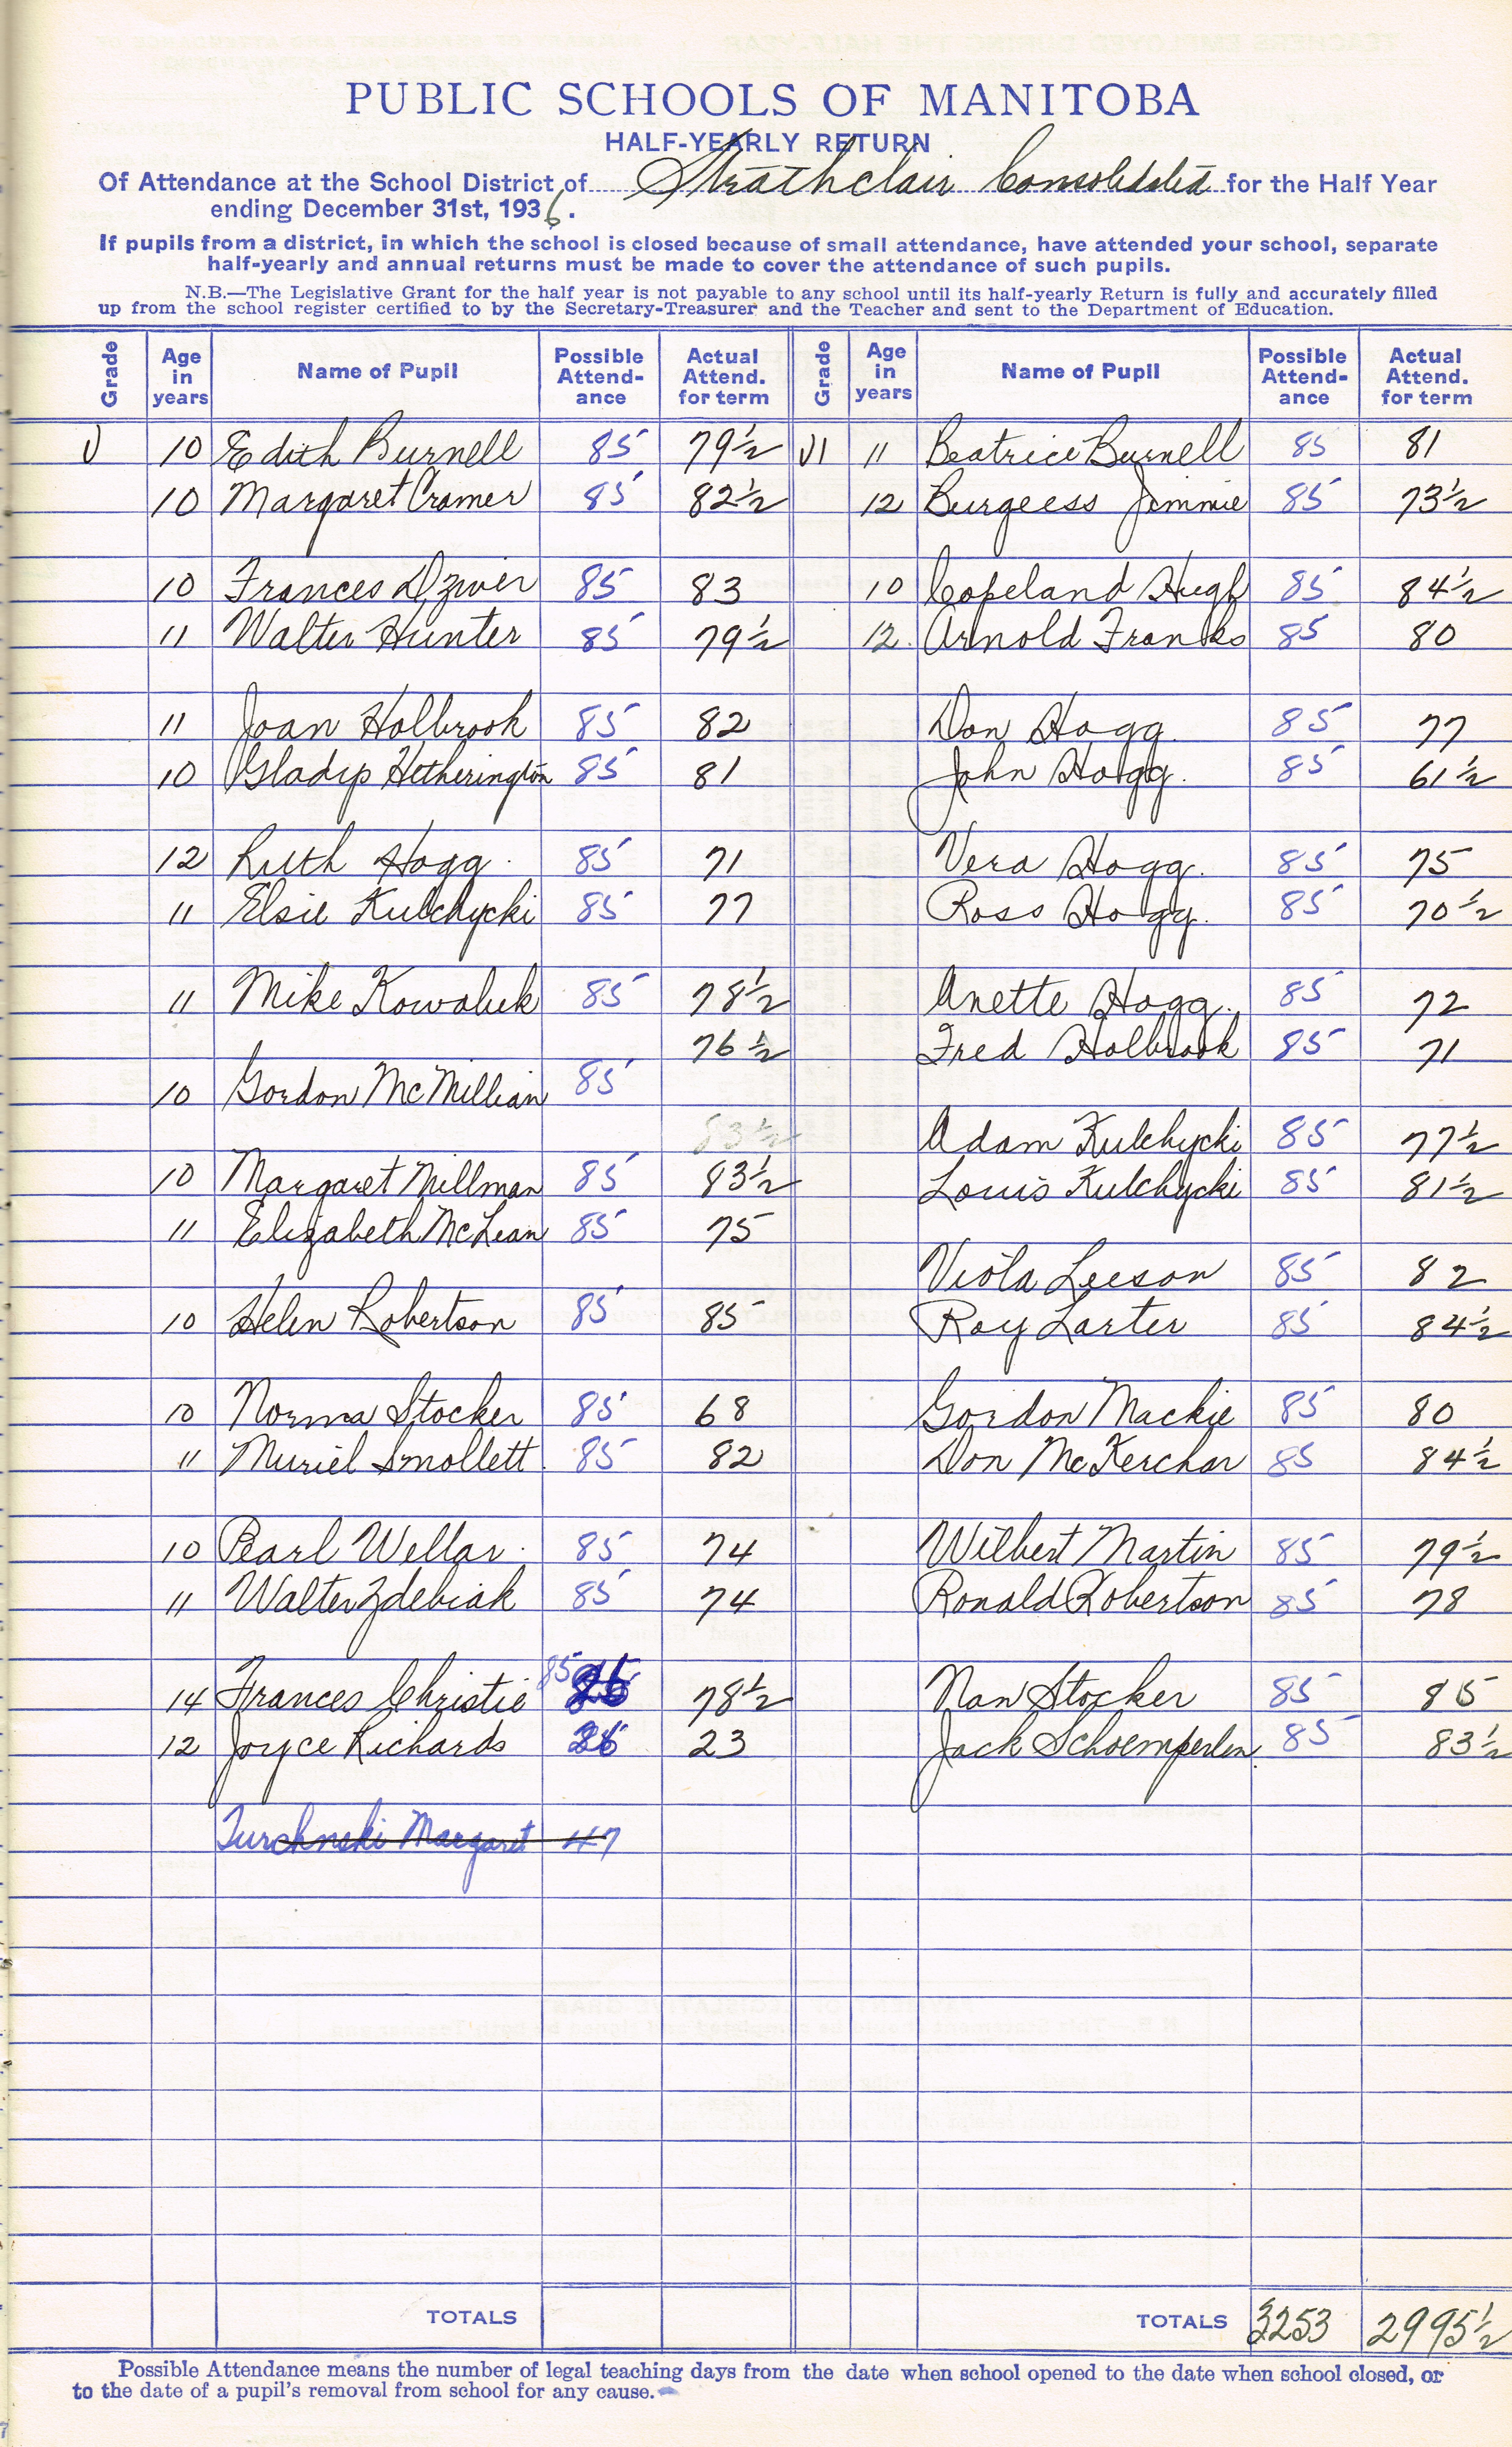 PUBLIC SCHOOLS OF MANITOBA
HALF-YEARLY RETURN
Of Attendance at the School District of Strathclair Consolidated for the Half Year
ending December 31st, 1936.
If pupils from a district, in which the school is closed because of small attendance, have attended your school, separate
half-yearly and annual returns must be made to cover the attendance of such pupils.
N.B.—The Legislative Grant for the half year is not payable to any school until its half-yearly Return is fully and accurately filled
up from the school register certified to by the Secretary-Treasurer and the Teacher and sent to the Department of Education.
Grade Age in years Name of Pupil Possible Attend-ance Actual Attend. for term Grade Age in years Name of Pupil Possible Attend-ance Actual Attend. for term
V 10 Edith Burnell 85 79½ VI 11 Beatrice Burnell 85 81
10 Margaret Cramer 85 82½ 12 Burgeess Jimmie 85 73½
10 Frances Dzwer 85 83 10 Copeland Hugh 85 84½
11 Walter Hunter 85 79½ 12. Arnold Franks 85 80
11 Joan Holbrook 85 82 Don Hogg. 85 77
10 Gladys Hetherington 85 81 John Hogg. 85 61½
12 Ruth Hogg. 85 71 Vera Hogg. 85 75
11 Elsie Kulchycki 85 77 Ross Hogg. 85 70½
11 Mike Kowaluk 85 78½ Anette Hogg. 85 72
76½ Fred Holbrook 85 71
10 Gordon McMillian 85
83½ Adam Kulchycki 85 77½
10 Margaret Millman 85 83½ Louis Kulchycki 85 81½
11 Elizabeth McLean 85 75
Viola Leeson 85 82
10 Helen Robertson 85 85 Roy Larter 85 84½
10 Norma Stocker 85 68 Gordon Mackie 85 80
11 Muriel Smollett. 85 82 Don McKerchar 85 84½
10 Pearl Wellar. 85 74 Wilbert Martin 85 79½
11 Walter Zdebiak 85 74 Ronald Robertson 85 78
14 Frances Christie 85 78½ Nan Stocker 85 85
12 Joyce Richards 26 23 Jack Schoemperlen. 85 83½
Turchnski Margaret 47
TOTALS TOTALS 3253 2995½
Possible Attendance means the number of legal teaching days from the date when school opened to the date when school closed, or
to the date of a pupil's removal from school for any cause.